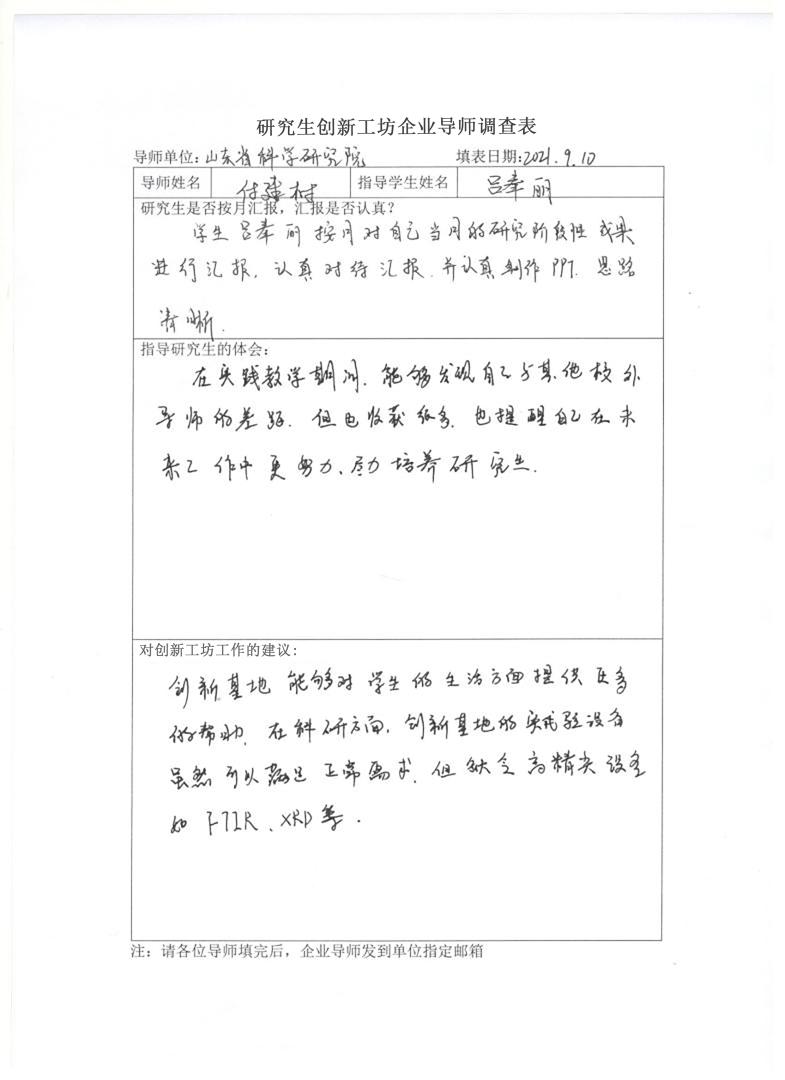 研究生创新工坊企业导师调查表
导师单位: 山东省科学研究院 填表日期: 2021.9.10
导师姓名 付建村 指导学生姓名 吕奉丽
研究生是否按月汇报，汇报是否认真？
学生吕奉丽按月对自己当月的研究阶段性成果
进行汇报，认真对待汇报.并认真制作PPT.思路
清晰.
指导研究生的体会：
在实践教学期间.能够发现自己与其他校外
导师的差距.但也收获颇多.也提醒自己在未
来工作中更努力、尽力培养研究生.
对创新工坊工作的建议:
创新基地能够对学生的生活方面提供更多
的帮助.在科研方面.创新基地的实验设备
虽然可以满足正常需求.但缺乏高精尖设备
如FTIR、XRD等.
注：请各位导师填完后，企业导师发到单位指定邮箱